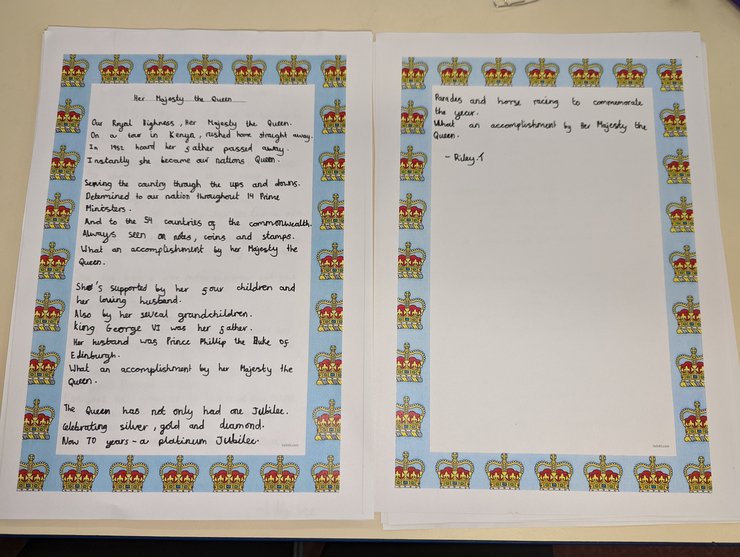 Her Majesty the Queen
Our Royal Highness, Her Majesty the Queen.
On a tour in Kenya, rushed home straight away.
In 1952 heard her father passed away.
Instantly she became our nations Queen.
Serving the country through the ups and downs.
Determined to our nation throughout 14 Prime
Ministers.
And to the 54 countries of the commonwealth.
Always seen on notes, coins and stamps.
What an accomplishment by her Majesty the
Queen.
She's supported by her four children and
her loving husband.
Also by her several grandchildren.
King George VI was her father.
Her husband was Prince Phillip the Duke of
Edinburgh.
What an accomplishment by her Majesty the
Queen.
The Queen has not only had one Jubilee.
Celebrating silver, gold and diamond.
Now 70 years - a platinum Jubilee.
twinkl.com
Parades and horse racing to commemorate
the year.
What an accomplishment by Her Majesty the
Queen.
- Riley.T
twinkl.com